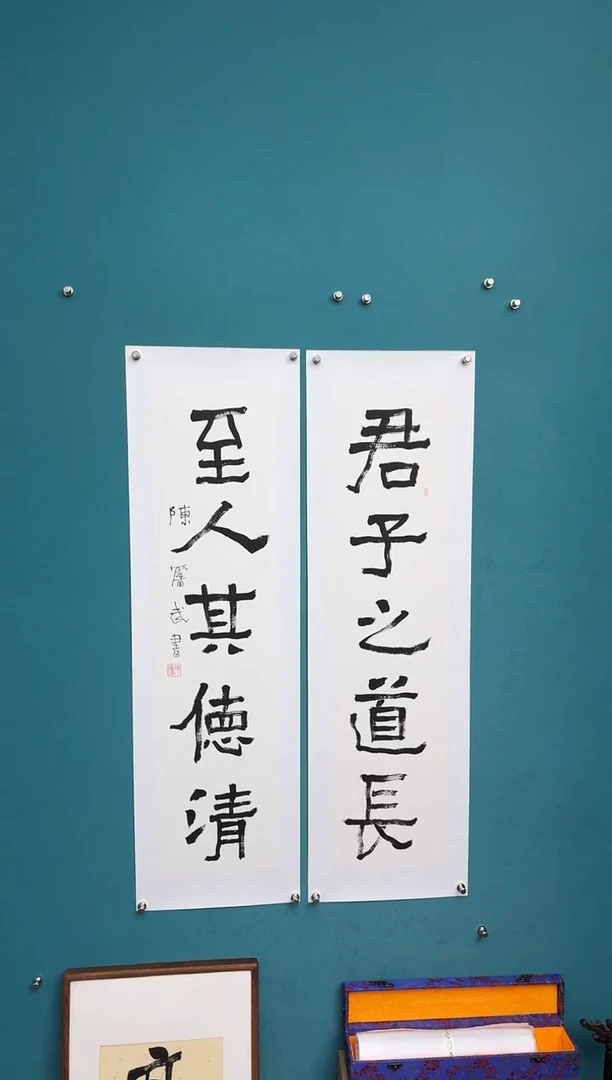 君子之道長
至人其德清
陳
武書